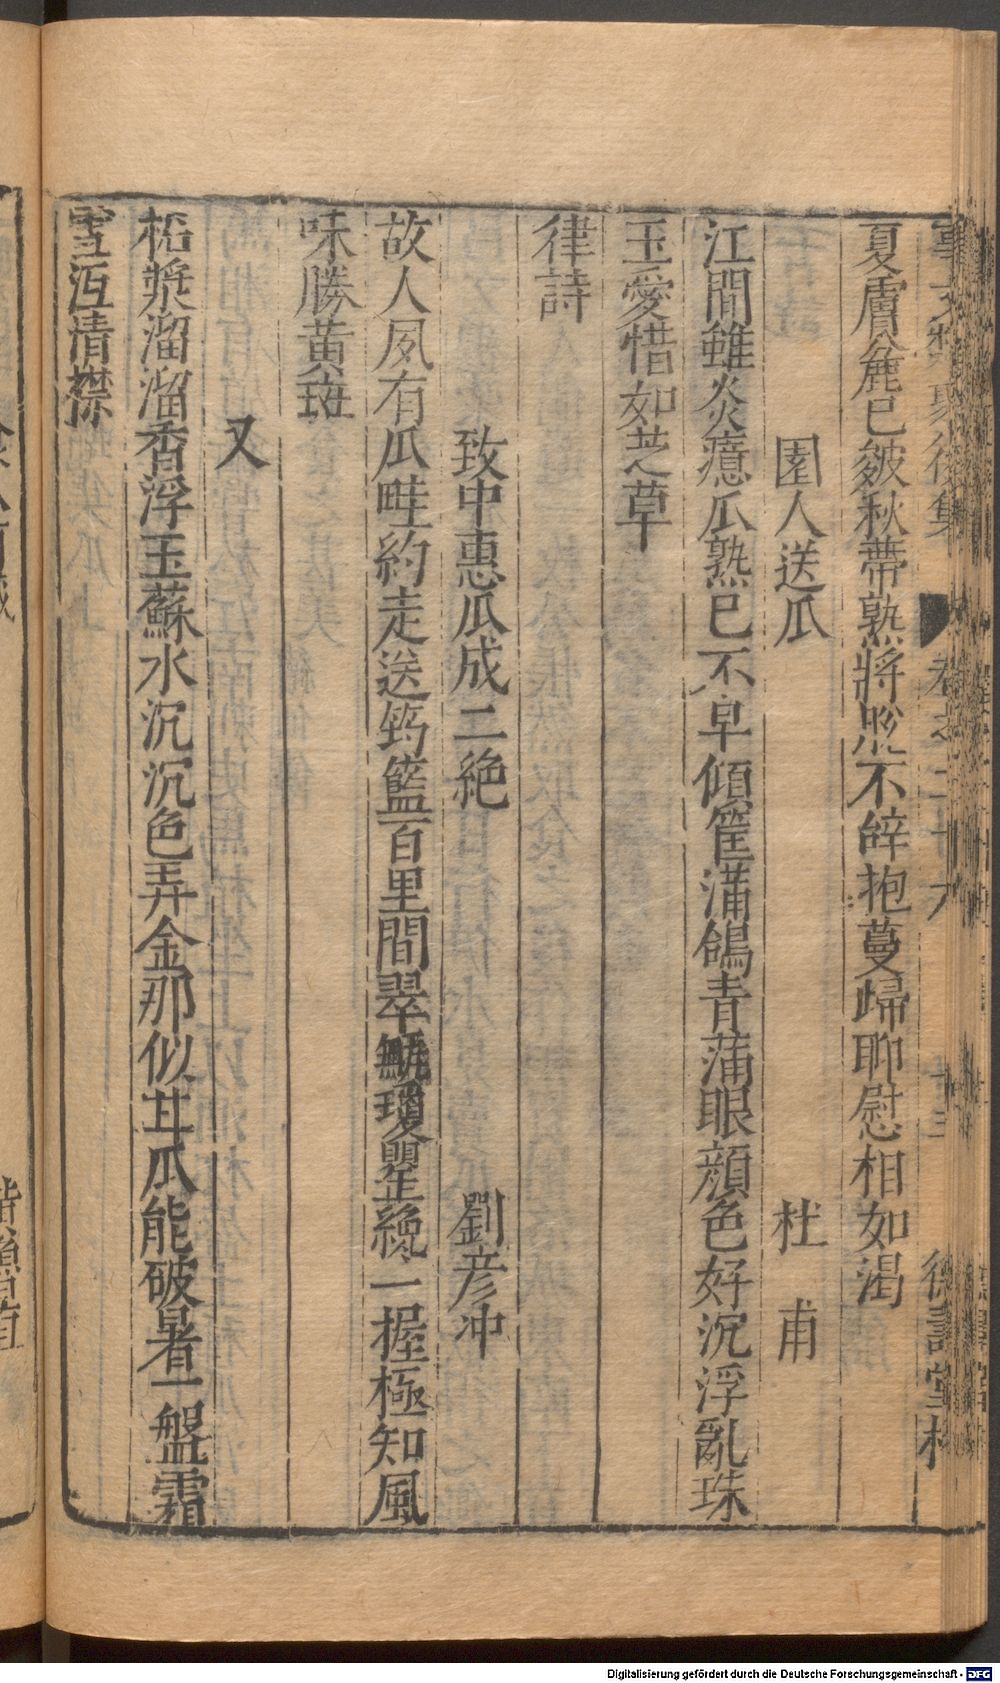 夏膚麄已皴秋蔕熟將脫不辭抱蔓歸聊慰相如渴
園人送瓜 杜甫
江間雖炎瘴瓜熟已不早傾筐滿鴿青蒲眼顔色好沉浮亂珠
玉愛惜如芝草
律詩
致中惠瓜成二絶 劉彥冲
故人夙有瓜畦約走送筠籃百里間翠瓊罌纔一握極知風
味勝黃斑
又
柘漿溜溜香浮玉蘇水沉沉色弄金那似甘瓜能破暑一盤霜
雪沍情襟
Digitalisierung gefördert durch die Deutsche Forschungsgemeinschaft - DFG